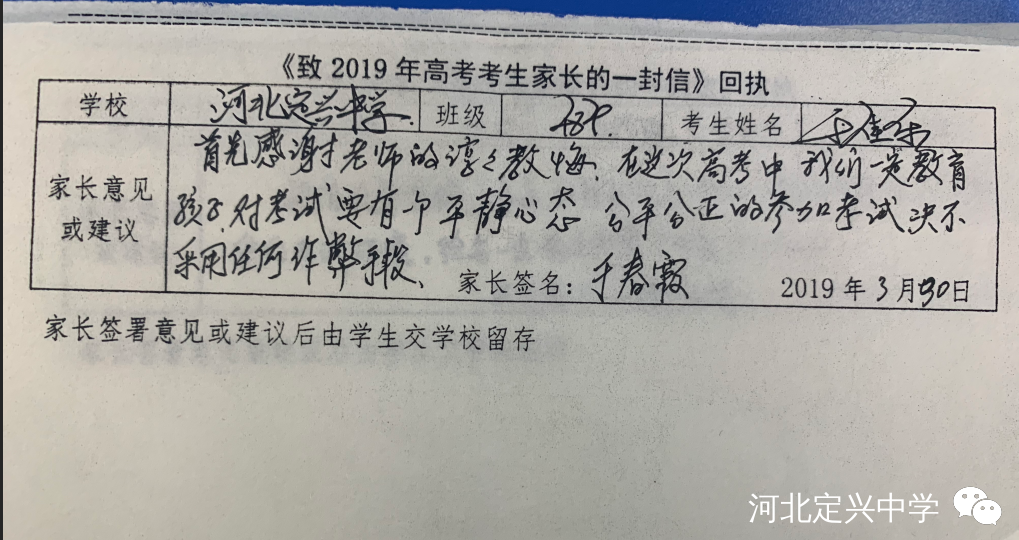 《致2019年高考考生家长的一封信》回执
学校 河北定兴中学. 班级 考生姓名
首先感谢老师的谆々教悔、在这次高考中我们一定教育
家长意见
孩子对考试要有个平静心态 公平公正的参加考试决不
或建议
采用任何作弊手段、
家长签名：于春霞 2019年3月30日
家长签署意见或建议后由学生交学校留存
河北定兴中学